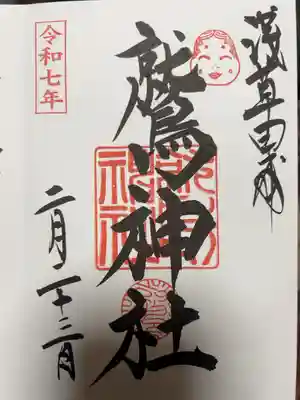 浅草田甫
鷲神社
令和七年
二月二十三日